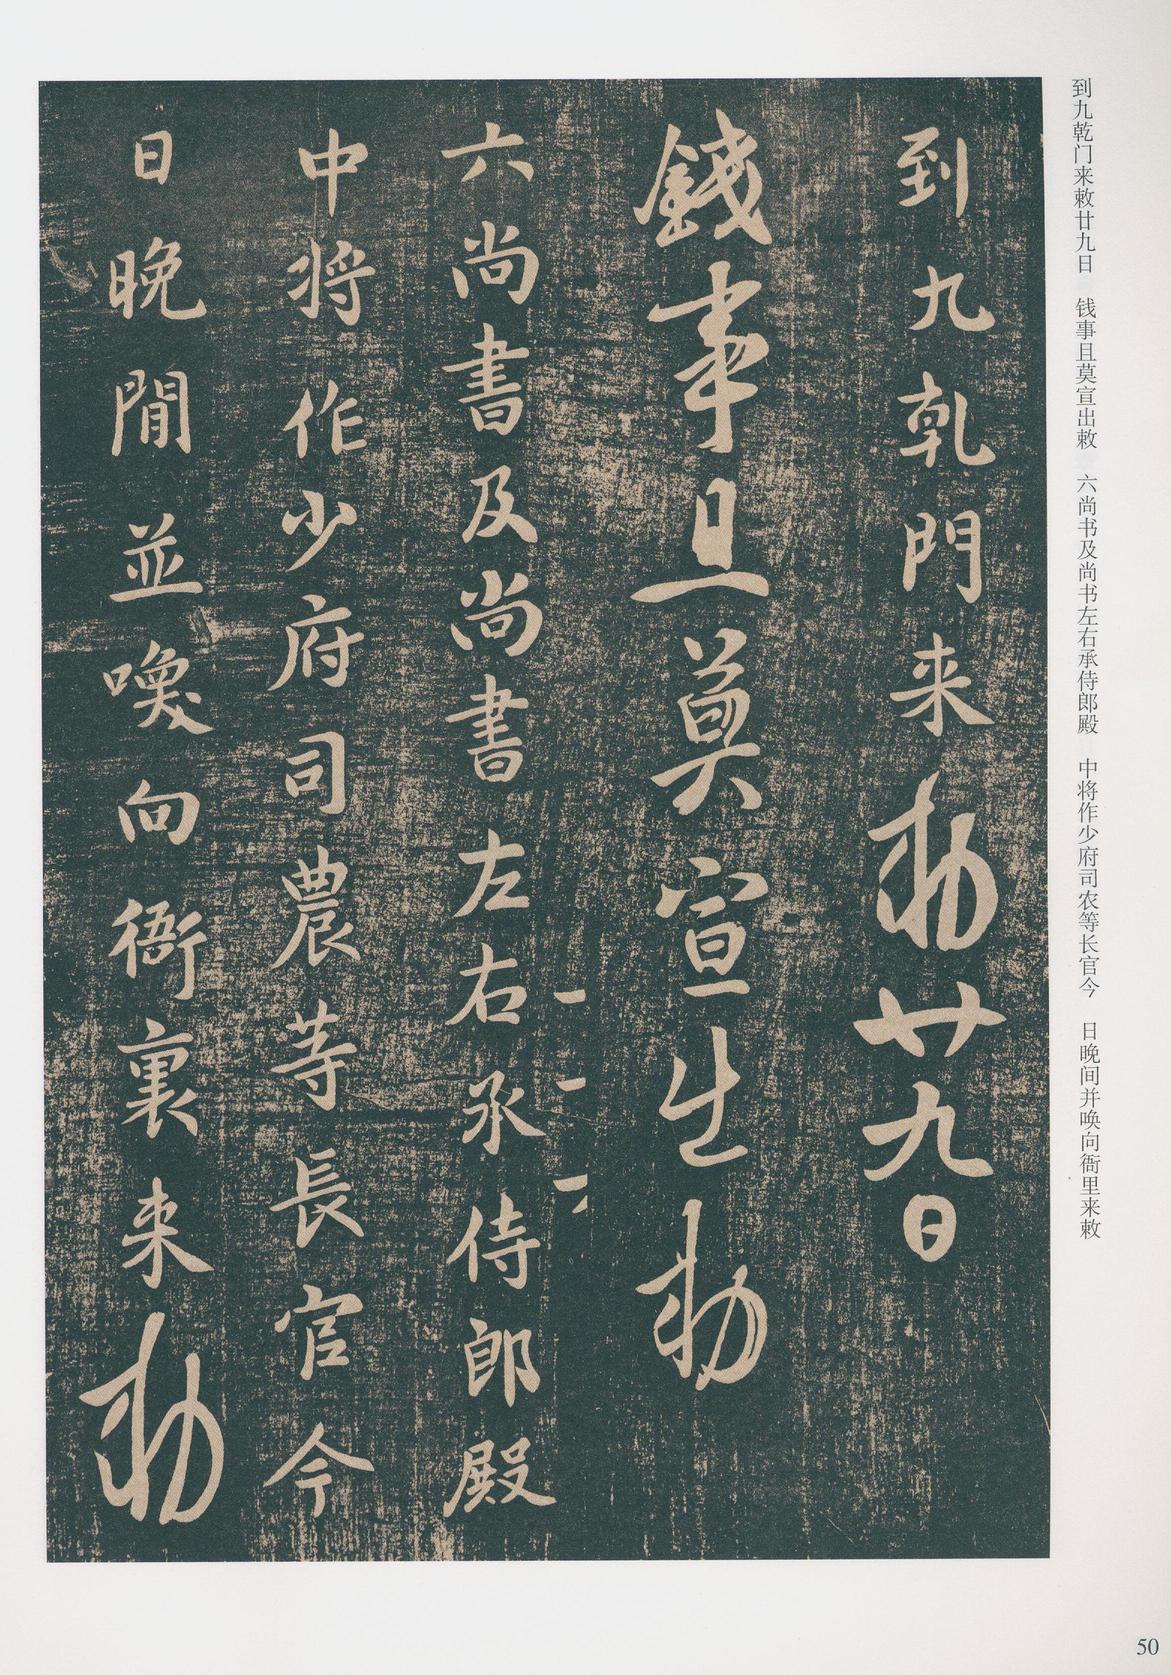 到九乾门来敕廿九日　钱事且莫宣出敕　六尚书及尚书左右承侍郎殿　中将作少府司农等长官今　日晚间并唤向衙里来敕
到九乾門来勅廿九日
錢事且莫宣出勅
六尚書及尚書左右承侍郎殿
中将作少府司農等長官今
日晚閒並喚向衙裏来勅
50